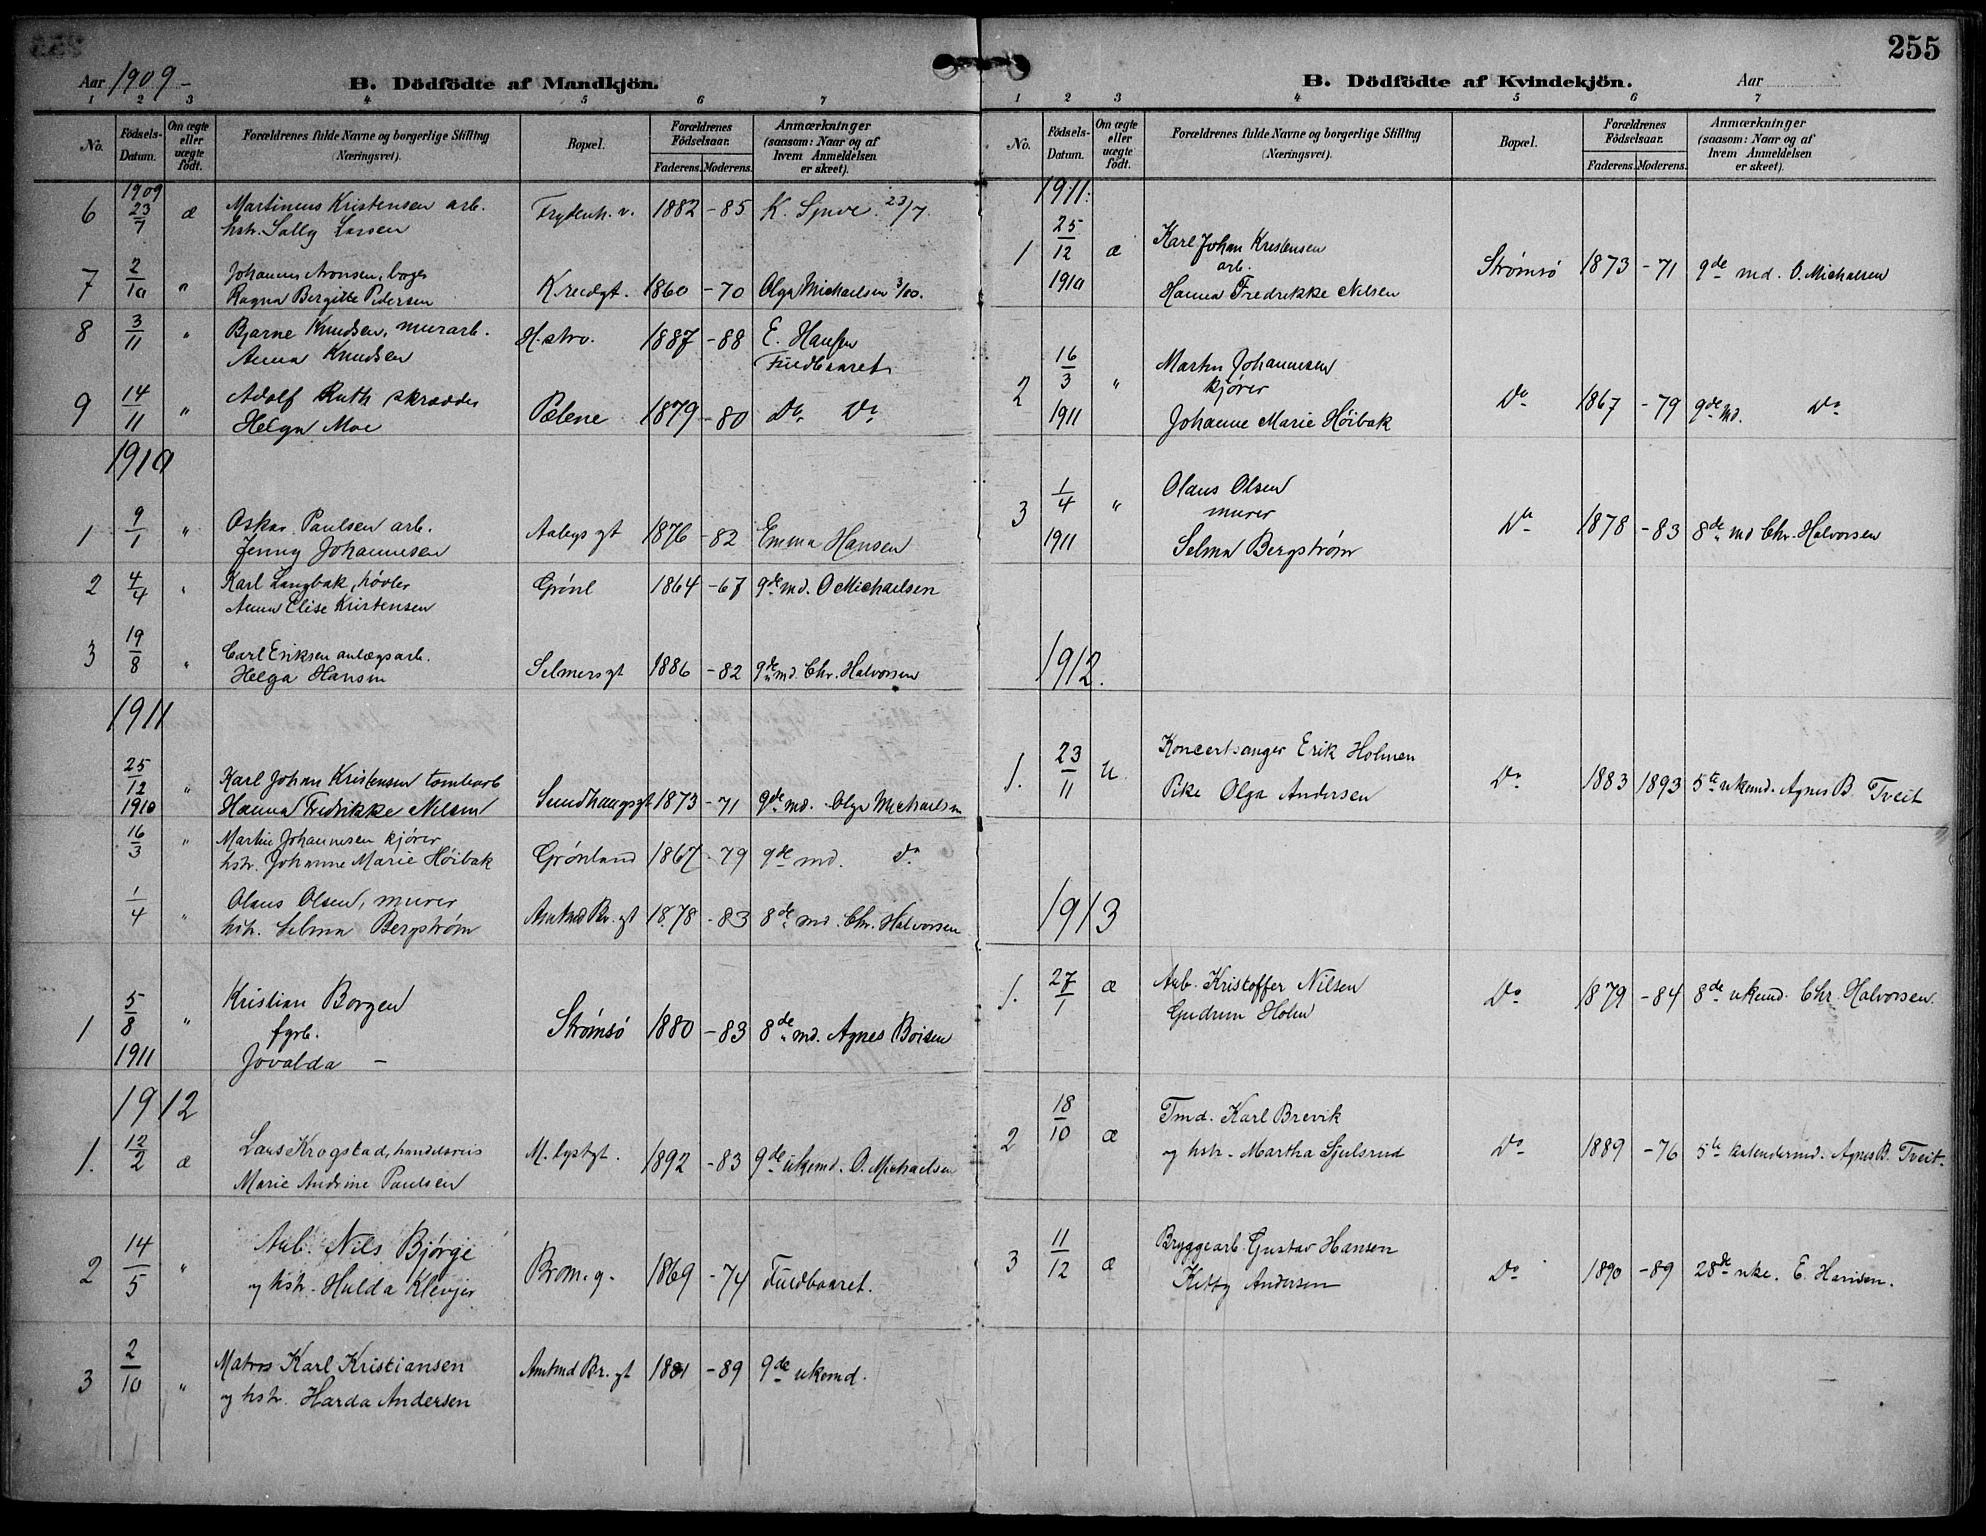 255
Aar 1909 B. Dödfödte af Mandkjön.
1 2 3 4 5 6 7
No. Födsels-Datum. Om ægte eller uægte födt. Forældrenes fulde Navne og borgerlige Stilling (Næringsvei). Bopæl. Forældrenes Födselsaar. Faderens. Moderens. Anmærkninger (saasom: Naar og af hvem Anmeldelsen er skeet).
1909
6 23/7 æ Martinius Kristensen arb. Frydenh. v. 1882 -85 K. 23/7.
hstr. Sally Larsen
7 2/10 " Johannes Aronsen, bager
Ragna Bergitte Pedersen 1860 -70 Olga Michaelsen 3/10.
8 3/11 " Bjarne Knudsen, murarb. H. strv. 1887 -88 E. Hansen
Anna Knudsen Fuldbaaret
9 14/11 " Adolf Ruth skrædder
Helga Moe 1879 -80 Do Do
1910
1 9/1 " Oskar Paulsen arb.
Jenny Johannesen 1876 -82 Emma Hansen
2 4/4 " Karl Langbak, høvler Grønl 1864 -67 9de md. O Michaelsen
Anna Elise Kristensen
3 19/8 " Carl Eriksen anlægsarb.
Helga Hansen Selmersgt 1886 -82 9de md. Chr. Halvorsen
1911
25/12 1910 " Karl Johan Kristensen tomtearb
Hanna Fredrikke Nilsen Sundhaugsgt 1873 -71 9de md. Olga Michaelsen
16/3 " Martin Johannesen kjører
hstr. Johanne Marie Høibak Grønland 1867 -79 9de md. Do
1/4 " Olaus Olsen, murer
hstr. Selma Bergstrøm Amtmd Br. gt 1878 -83 8de md. Chr. Halvorsen
1 5/8 1911 " Kristian Borgen
fgrb. Strømsø 1880 -83 8de md. Agnes Boisen
Jovalda —
1912
1. 12/2 æ Lars Krogstad, handelsreis M. lystgt. 1892 -83 9de ukemd. O. Michaelsen
Marie Andrine Paulsen
2 14/5 " Arb. Nils Bjørge
og hstr. Hulda Klevjer Brom. g. 1869 -74 Fuldbaaret.
3 2/10 " Matros Karl Kristiansen Amtmd Br. gt 1881 -89 9de ukemd.
og hstr. Harda Andersen
B. Dödfödte af Kvindekjön. Aar
1 2 3 4 5 6 7
No. Födsels-Datum. Om ægte eller uægte födt. Forældrenes fulde Navne og borgerlige Stilling (Næringsvei). Bopæl. Forældrenes Födselsaar. Faderens. Moderens. Anmærkninger (saasom: Naar og af hvem Anmeldelsen er skeet).
1911.
1 25/12 1910 æ Karl Johan Kristensen
arb. Strømsø 1873 -71 9de md. O. Michalsen
Hanna Fredrikke Nilsen
2 16/3 1911 " Martin Johannesen
kjører Do 1867 -79 9de md. Do
Johanne Marie Høibak
3 1/4 1911 " Olaus Olsen
murer Do 1878 -83 8de md Chr. Halvorsen
Selma Bergstrøm
1912.
1. 23/11 u. Koncertsanger Erik Holmen
Pike Olga Andersen Do 1883 1893 5te ukemd. Agnes B. Tveit
1913
1. 27/1 æ Arb. Kristoffer Nilsen Do 1879 -84 8de ukemd. Chr. Halvorsen.
Gudrun Holm
2 18/10 æ Tmd. Karl Brevik
og hstr. Martha Sjulsrud Do 1889 -76 5te kalendermd. Agnes B. Tveit.
3 11/12 æ Bryggearb. Gustav Hansen
Kitty Andersen Do 1890 -89 28de uke. E. Hansen.